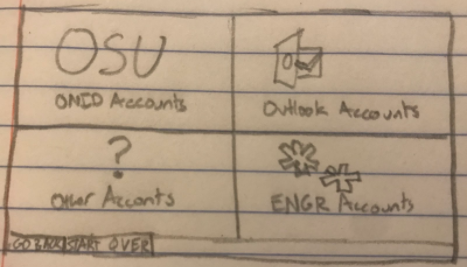 OSU
ONID Accounts
O
Outlook Accounts
?
Other Acconts
ENGR Accounts
GO BACK START OVER